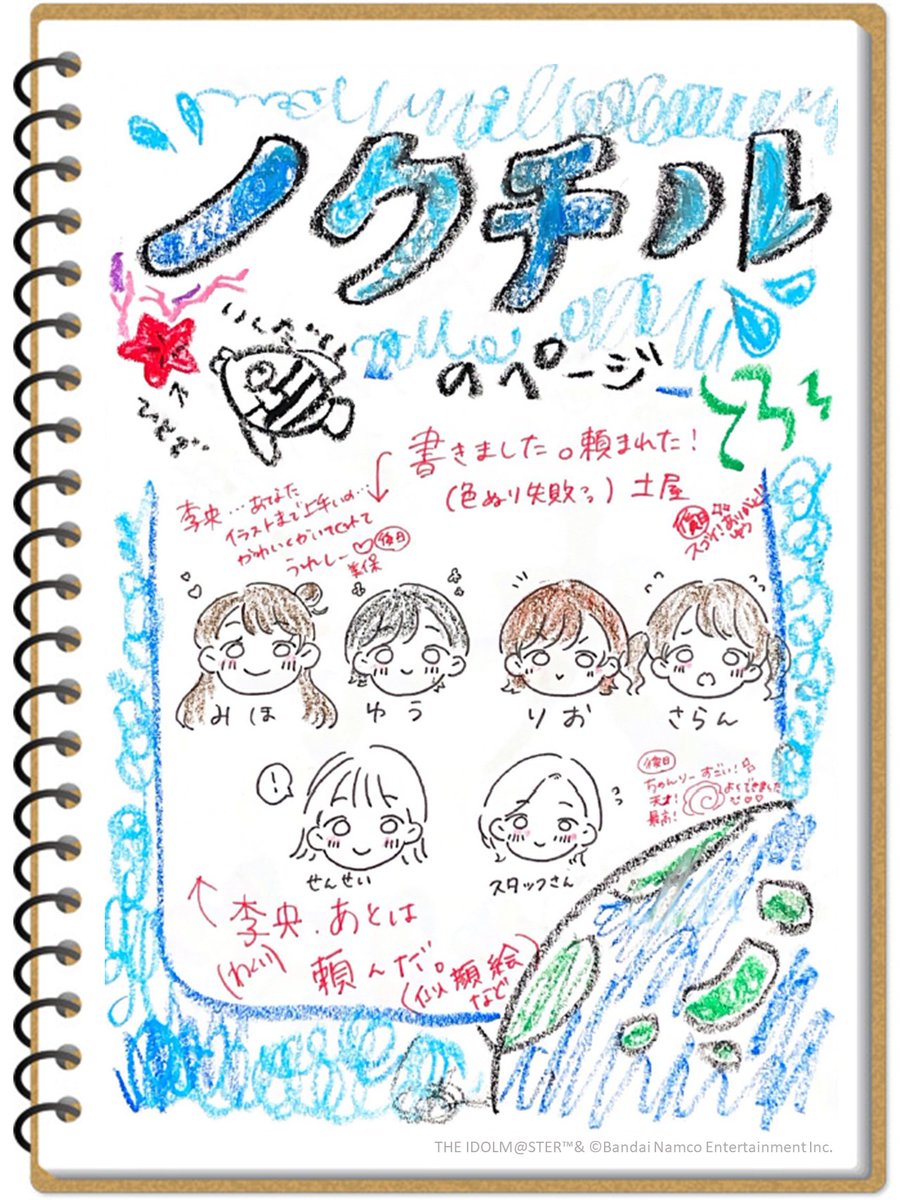 ノクチル
のページ
いしだい
書きました。頼まれた！
(色ぬり失敗…) 土屋
李央…あなた
イラストまで上手いの…
かわいくかいてくれて
うれしー♡ 後日
美保
後日
スゴイ!ありがとう
ゆう
みほ
ゆう
りお
さらん
!
せんせい
スタッフさん
後日
ちゃんりー すごい！
天才！
最高！
よくできました
李央、あとは
頼んだ。
(似顔絵
など)
THE IDOLM@STER™& ©Bandai Namco Entertainment Inc.